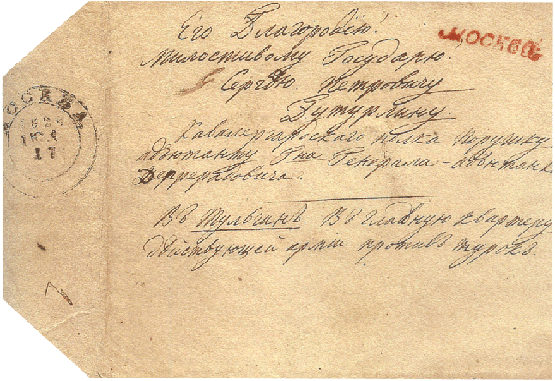 Его Благородію!
Милостивому Государю.
Сергѣю Петровичу
Бутурлину
Кавалергардскаго полка Поручику
адъютанту Г на Генерала-адъютан
въ Тульчинъ въ главную квартеру
дѣйствующей арміи противъ турокъ.
МОСКВА
МОСКВА
17